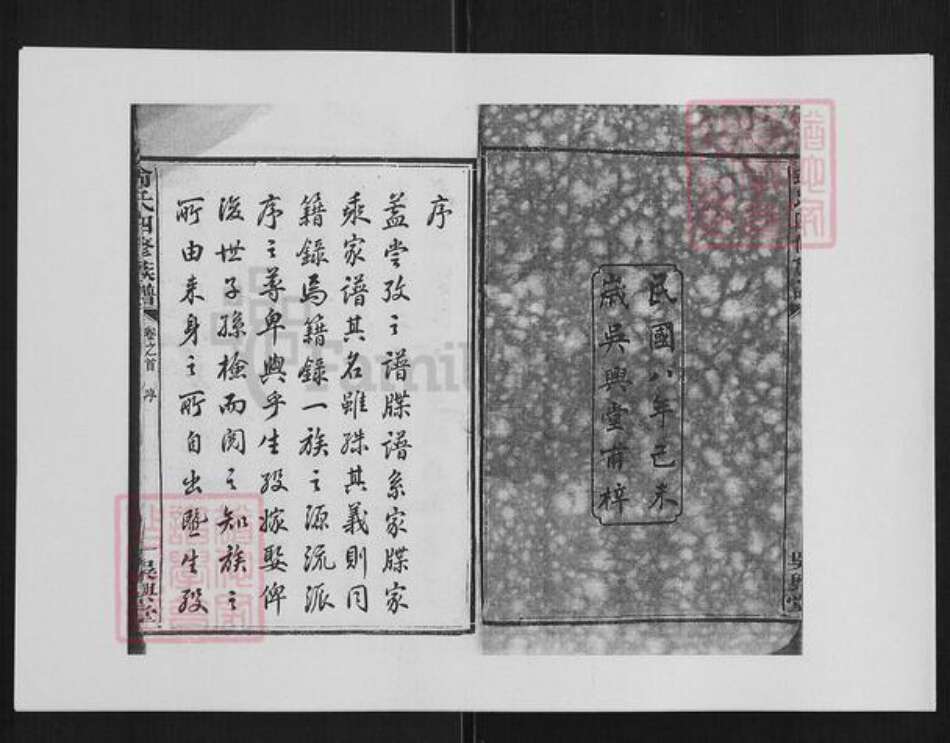 民國八年己未
歲吳興堂甫梓
序
蓋嘗攷之譜牒譜系家牒家
乘家譜其名雖殊其義則同
籍錄焉籍錄一族之源流派
序之尊卑與乎生歿嫁娶俾
後世子孫檢而閱之知族之
所由来身之所自出塈生歿
俞氏四修族譜
卷之首 序
一
吳興堂